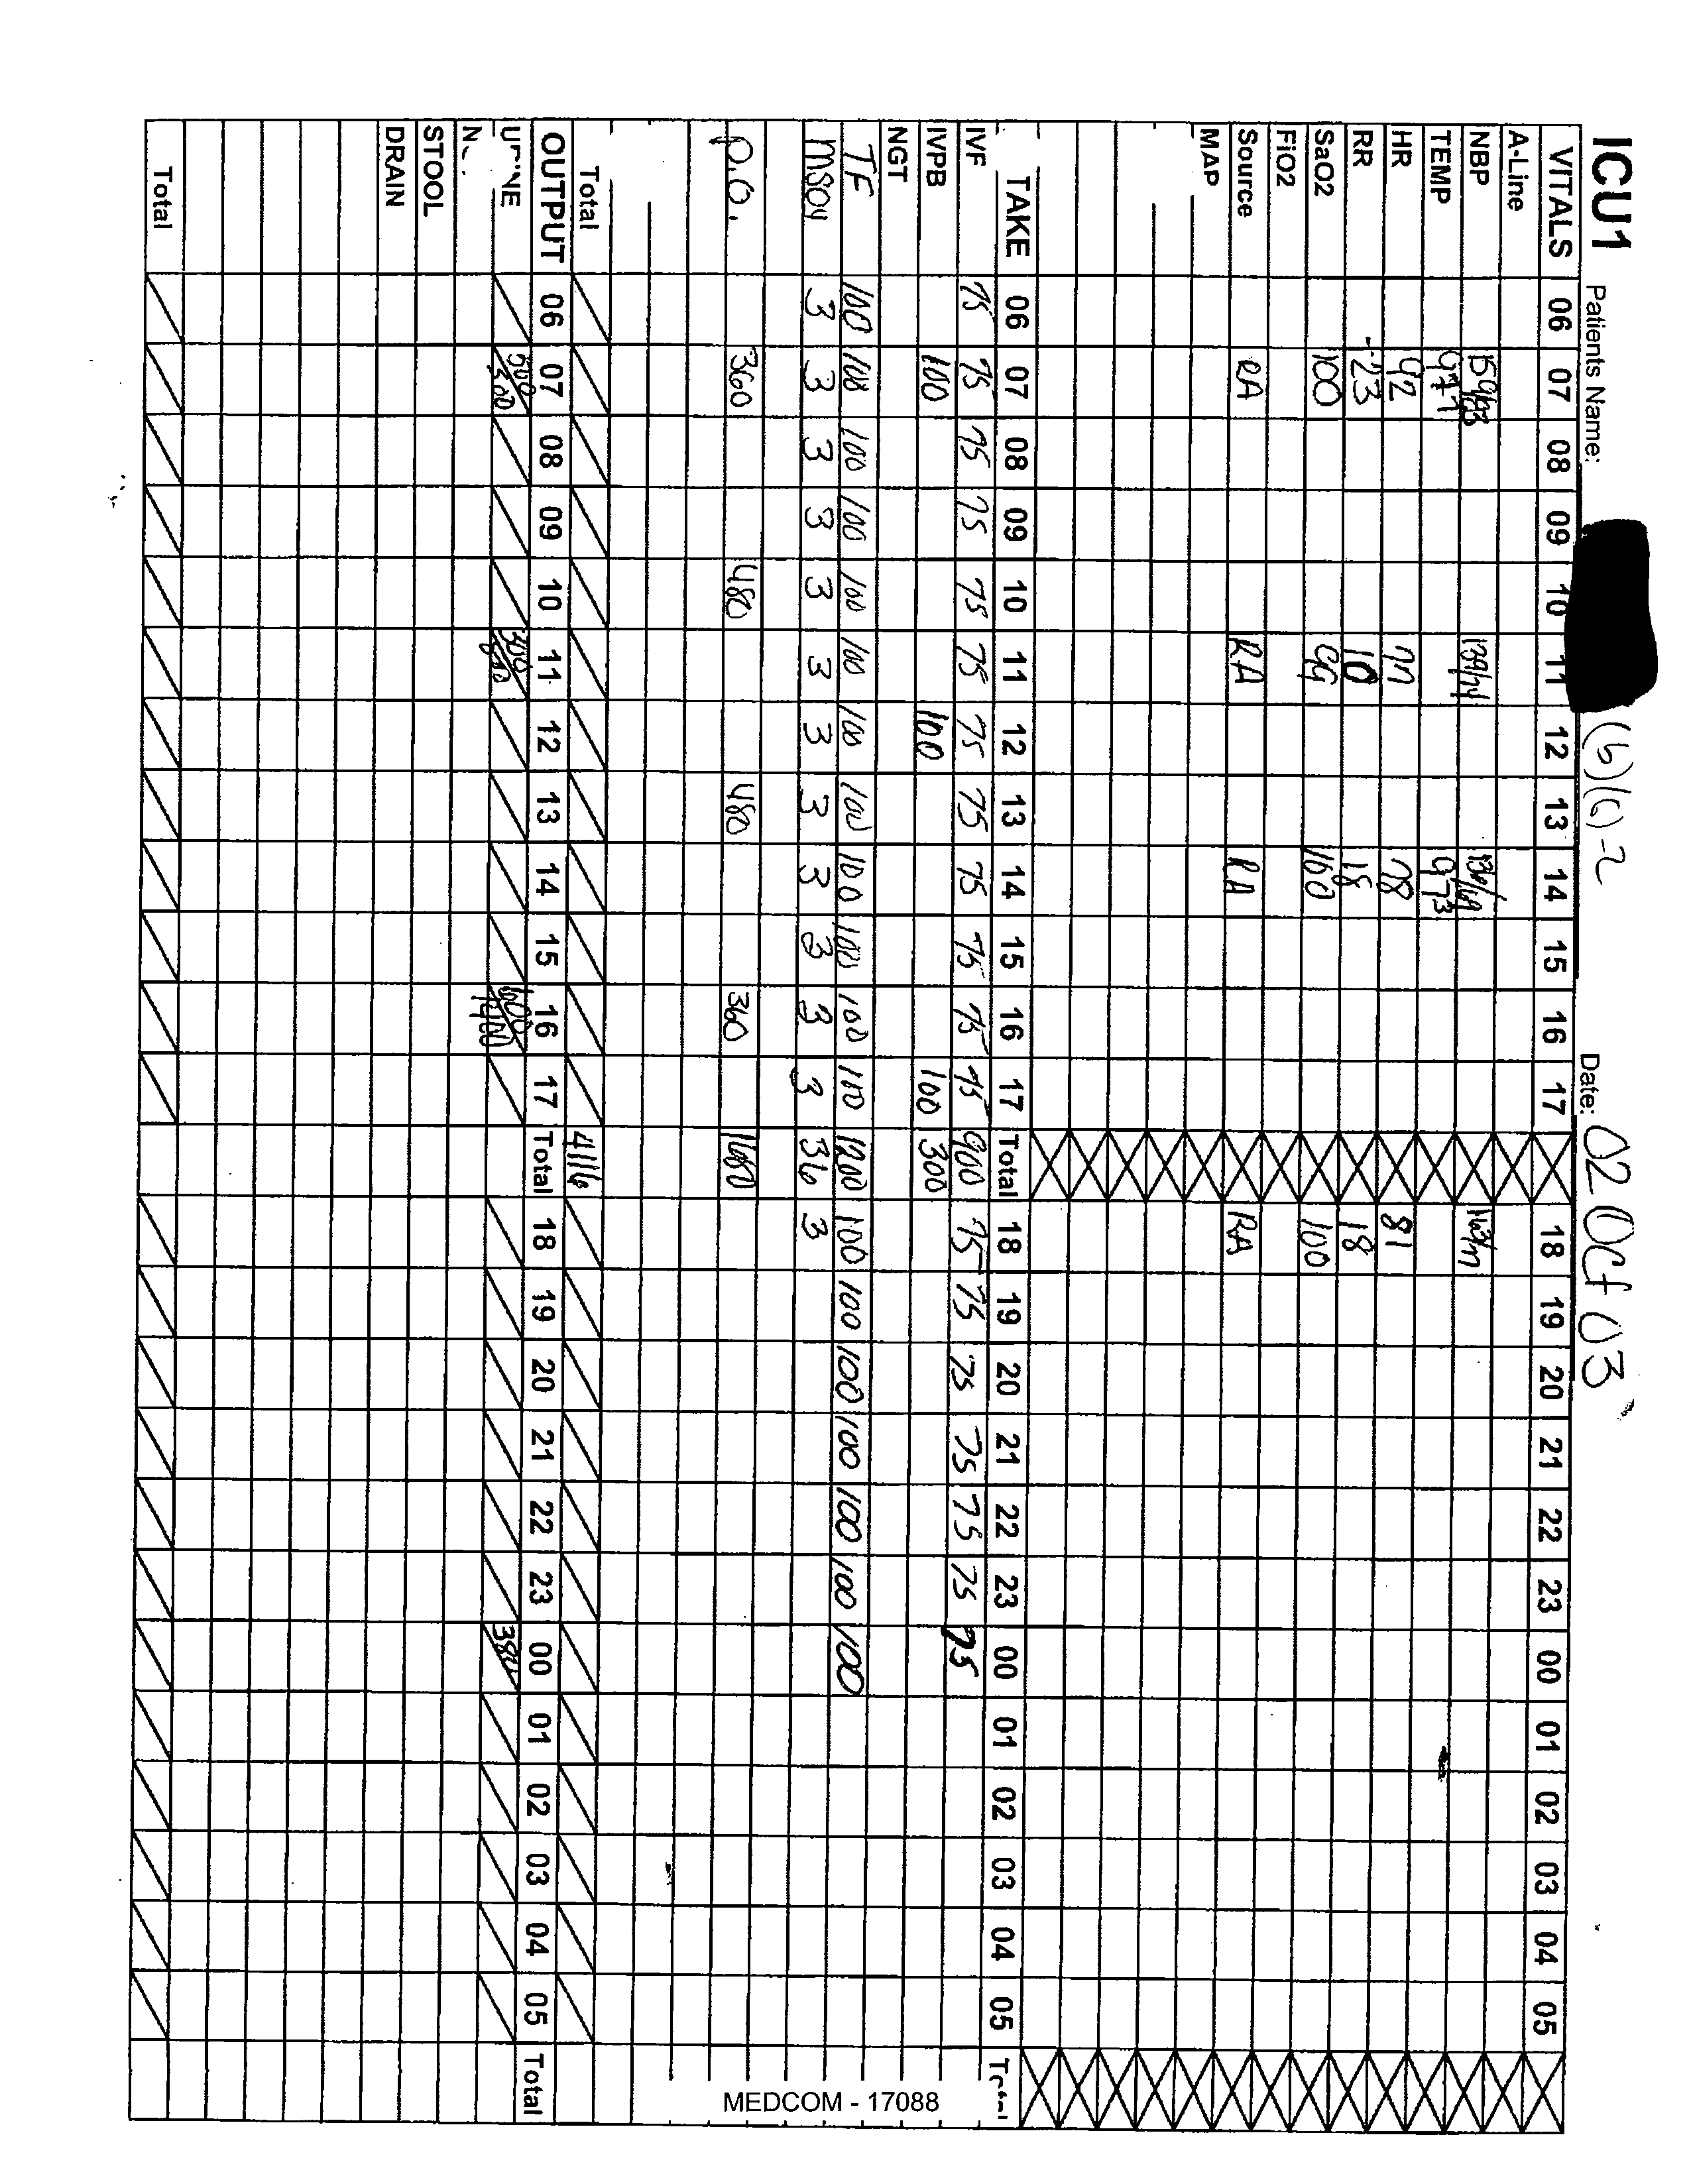 ICU1 Patients Name: (b)(6)-2 Date: 02 Oct 03
VITALS 06 07 08 09 10 11 12 13 14 15 16 17 18 19 20 21 22 23 00 01 02 03 04 05
A-Line
NBP 139/74 136/69
TEMP 973
HR 92 78 81
RR 23 10 18 18
SaO2 100 99 100 100
FiO2
Source RA RA RA RA
MAP
TAKE 06 07 08 09 10 11 12 13 14 15 16 17 Total 18 19 20 21 22 23 00 01 02 03 04 05
IVF 75 75 75 75 75 75 75 75 75 75 75 75 900 75 75 75 75 75 75 75
IVPB 100 100 100 300
NGT
TF 100 100 100 100 100 100 100 100 100 100 100 1200 100 100 100 100 100 100 100
MSO4 3 3 3 3 3 3 3 3 3 3 3 3 36 3
P.O. 360 480 480 360 1680
Total 4116
OUTPUT 06 07 08 09 10 11 12 13 14 15 16 17 Total 18 19 20 21 22 23 00 01 02 03 04 05 Total
500 300 300 600 380
STOOL
DRAIN
Total
MEDCOM - 17088